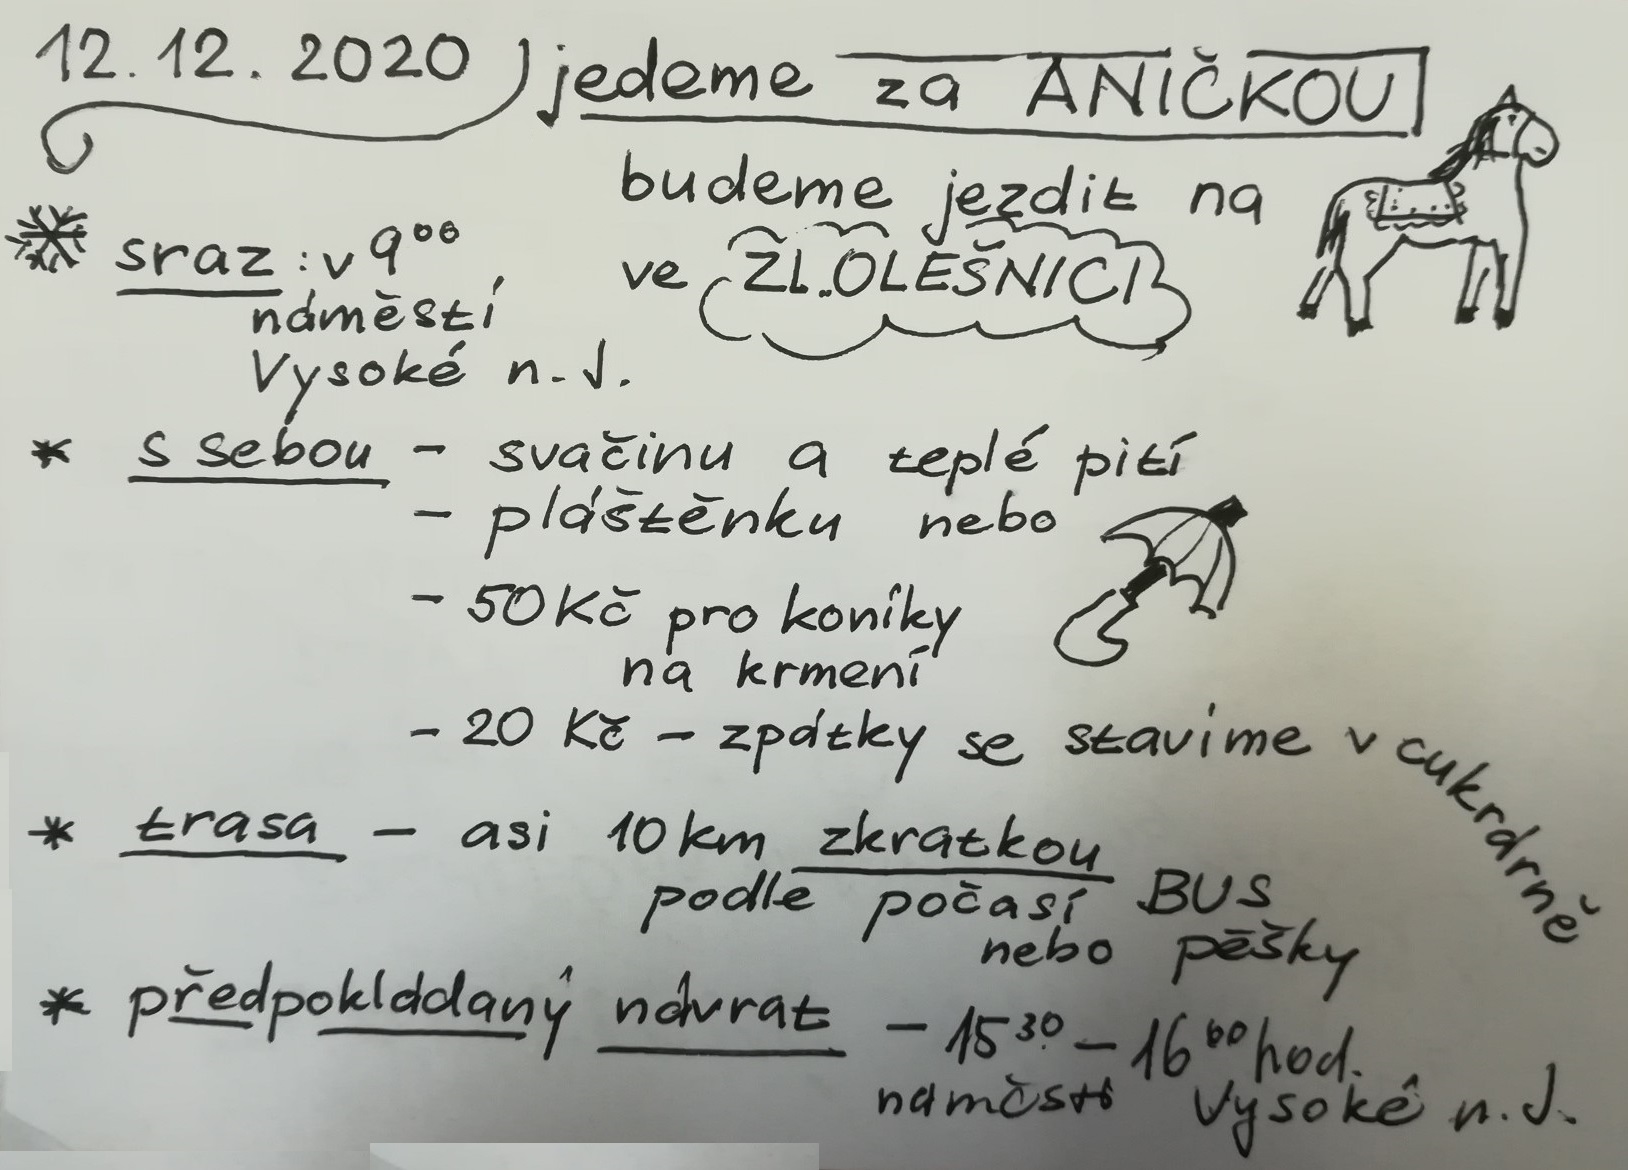 12.12.2020 jedeme za ANIČKOU
budeme jezdit na
ve ZL.OLEŠNICI
sraz: v 9⁰⁰
náměstí
Vysoké n.J.
* s sebou - svačinu a teplé pití
- pláštěnku nebo
- 50Kč pro koníky
na krmení
- 20 Kč - zpátky se stavíme v cukrárně
* trasa - asi 10km zkratkou
podle počasí BUS
nebo pěšky
* předpokládaný návrat - 15³⁰ - 16⁰⁰ hod.
náměstí Vysoké n.J.